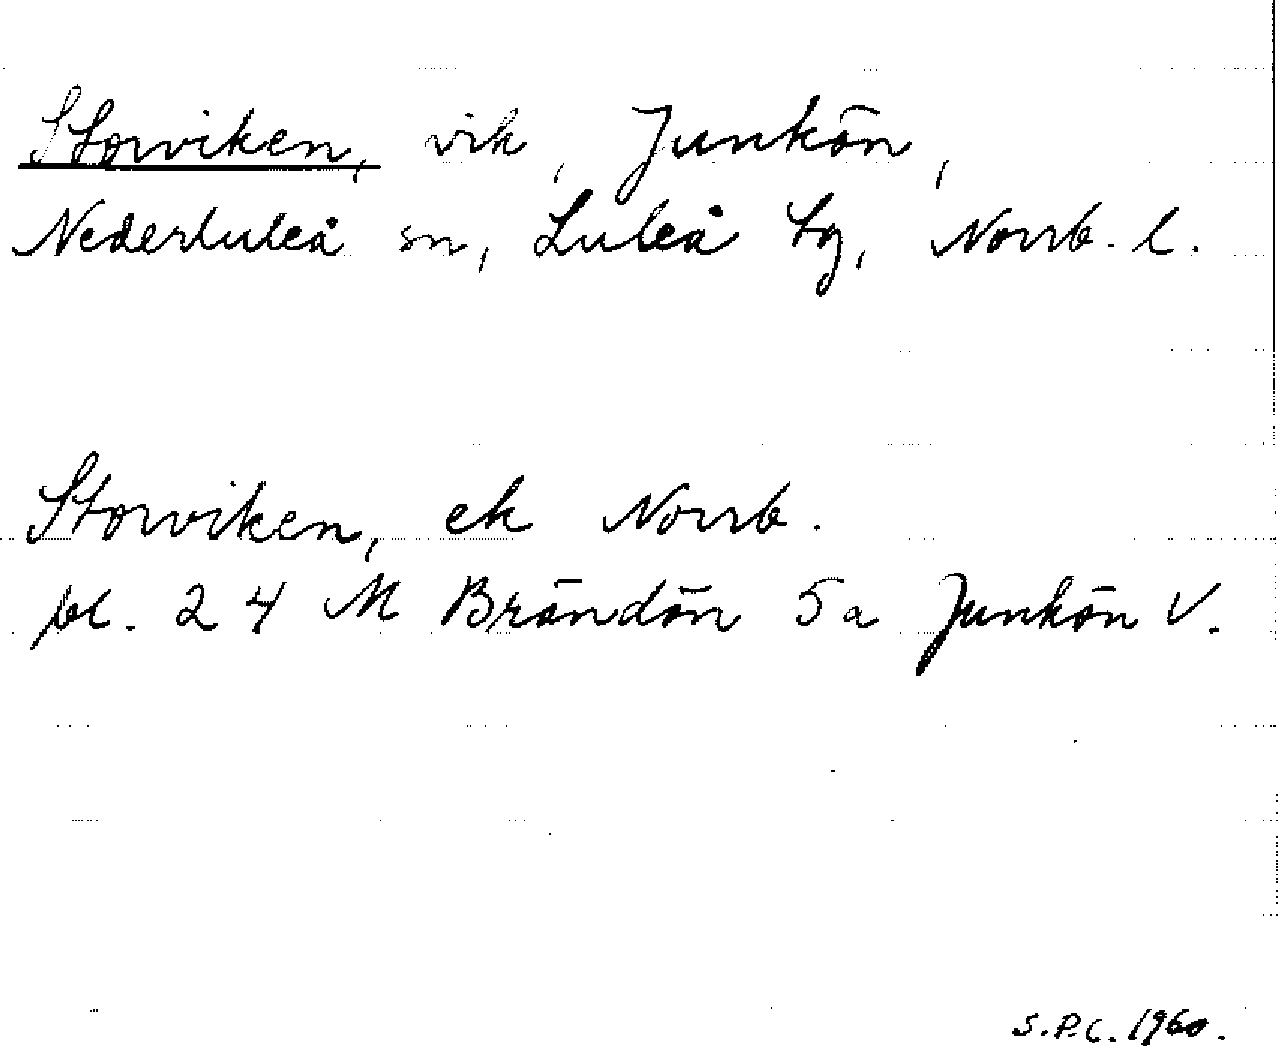 Storviken, vik, Junkön,
Nederluleå sn, Luleå tg, Norrb. l.
Storviken, ek Norrb.
bl. 24 M Brändön 5a Junkön V.
S.P.C. 1960.